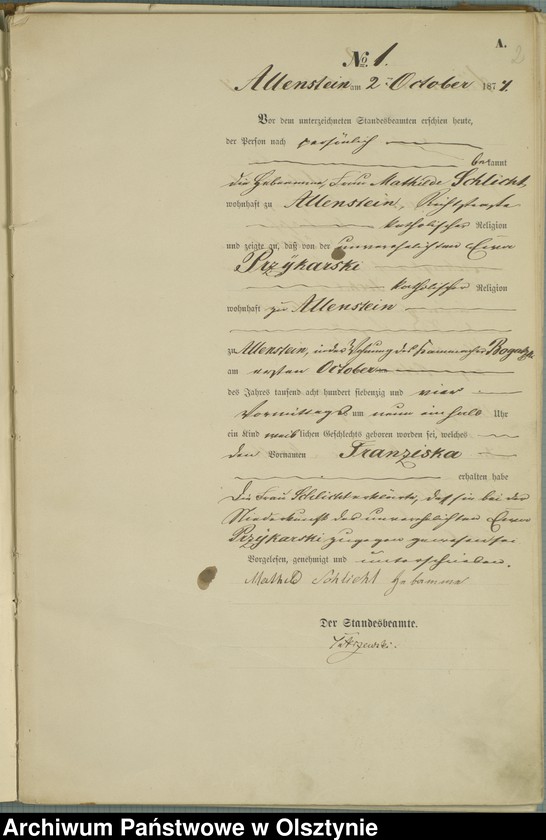 A.
2
No 1.
Allenstein am 2ten October 1874.
Vor dem unterzeichneten Standesbeamten erschien heute,
der Person nach persönlich
bekannt
die Hebamme, Frau Mathilde Schlicht,
wohnhaft zu Allenstein,
katholischer Religion
und zeigte an, daß von der unverehelichten Eva
Przykarski
katholischer Religion
wohnhaft zu Allenstein
zu Allenstein, in der Wohnung des
am ersten October
des Jahres tausend acht hundert siebenzig und vier
Vormittags um neun einhalb Uhr
ein Kind weiblichen Geschlechts geboren worden sei, welches
den Vornamen Franziska
erhalten habe
Die Frau Schlicht erklärte, daß sie bei der
Niederkunft der unverehelichten Eva
Przykarski zugegen gewesen sei
Vorgelesen, genehmigt und unterschrieben.
Mathild Schlicht Hebamme
Der Standesbeamte.
Archiwum Państwowe w Olsztynie